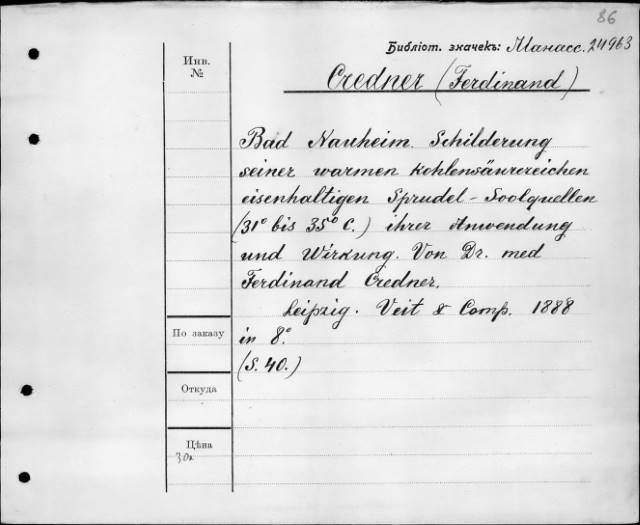 86
Библіот. значекъ: Манасс. 24963
Инв.
№
Credner (Ferdinand)
Bad Nauheim. Schilderung
seiner warmen kohlensäurereichen
eisenhaltigen Sprudel-Soolquellen
(31° bis 35° C.) ihrer Anwendung
und Wirkung. Von Dr. med
Ferdinand Credner.
Leipzig. Veit & Comp. 1888
По заказу
in 8°
(S. 40.)
Откуда
Цѣна
30к